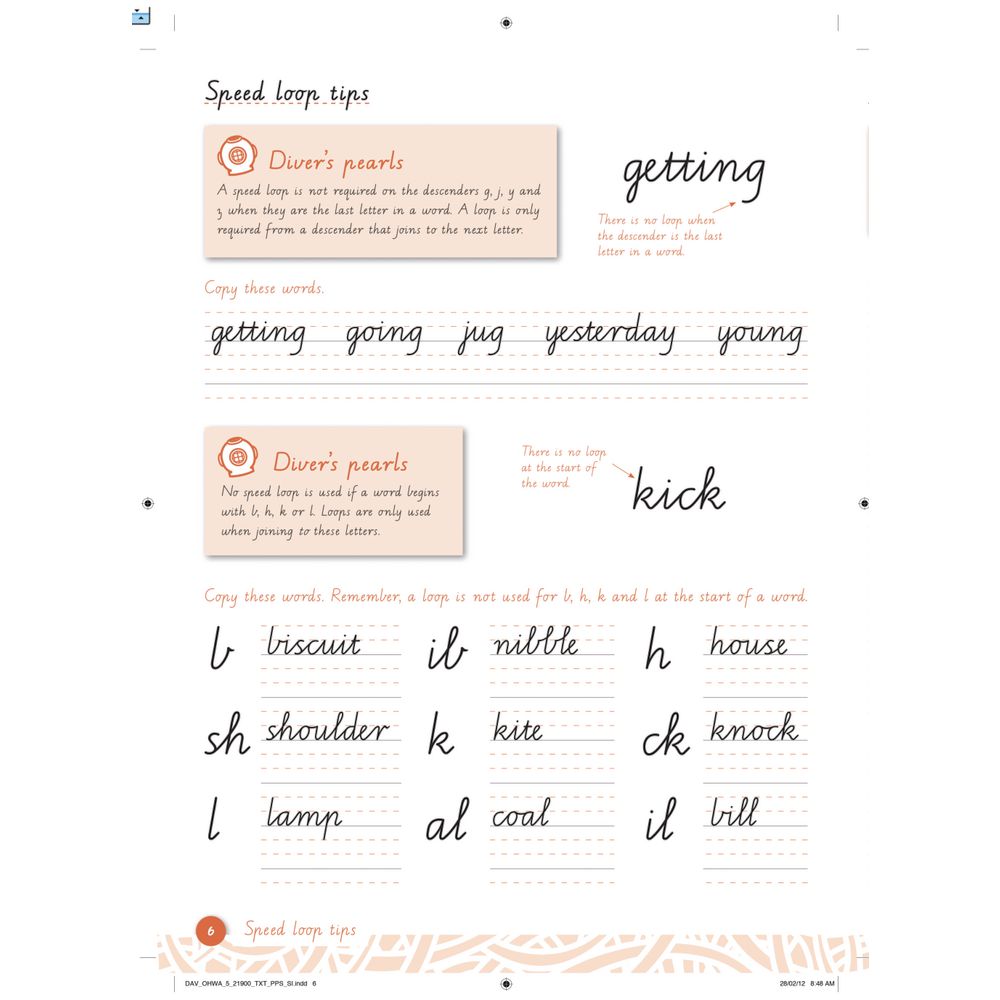 Speed loop tips
Diver's pearls
A speed loop is not required on the descenders g, j, y and
z when they are the last letter in a word. A loop is only
required from a descender that joins to the next letter.
getting
There is no loop when
the descender is the last
letter in a word.
Copy these words.
getting going jug yesterday young
Diver's pearls
No speed loop is used if a word begins
with b, h, k or l. Loops are only used
when joining to these letters.
There is no loop
at the start of
the word.
kick
Copy these words. Remember, a loop is not used for b, h, k and l at the start of a word.
b biscuit ib nibble h house
sh shoulder k kite ck knock
l lamp al coal il bill
6 Speed loop tips
DAV_OHWA_5_21900_TXT_PPS_SI.indd 6 28/02/12 8:48 AM